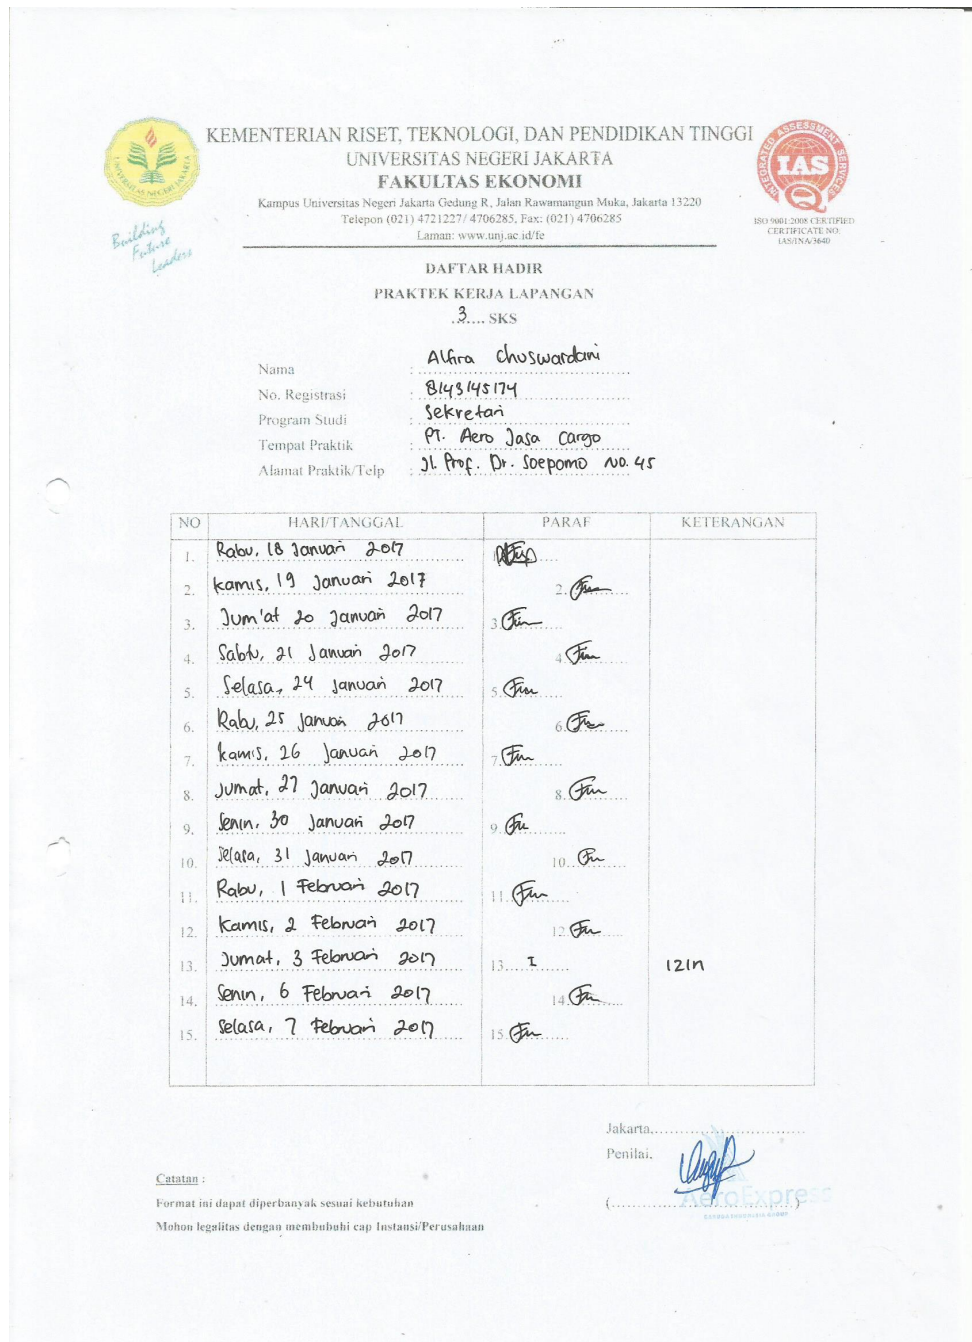 KEMENTERIAN RISET, TEKNOLOGI, DAN PENDIDIKAN TINGGI
UNIVERSITAS NEGERI JAKARTA
FAKULTAS EKONOMI
Kampus Universitas Negeri Jakarta Gedung R, Jalan Rawamangun Muka, Jakarta 13220
Telepon (021) 4721227/ 4706285, Fax: (021) 4706285
Laman: www.unj.ac.id/fe
UNIVERSITAS NEGERI JAKARTA
Building
Future
Leaders
INTEGRATED ASSESSMENT SERVICES
IAS
Q
ISO 9001:2008 CERTIFIED
CERTIFICATE NO:
IAS/INA/3640
DAFTAR HADIR
PRAKTEK KERJA LAPANGAN
3 SKS
Nama : Alfira Chuswardani
No. Registrasi : 8143145174
Program Studi : Sekretari
Tempat Praktik : PT. Aero Jasa Cargo
Alamat Praktik/Telp : Jl. Prof. Dr. Soepomo No. 45
NO HARI/TANGGAL PARAF KETERANGAN
1. Rabu, 18 Januari 2017
2. Kamis, 19 Januari 2017 2.
3. Jum'at 20 Januari 2017 3.
4. Sabtu, 21 Januari 2017 4.
5. Selasa, 24 Januari 2017 5.
6. Rabu, 25 Januari 2017 6.
7. Kamis, 26 Januari 2017 7.
8. Jumat, 27 Januari 2017 8.
9. Senin, 30 Januari 2017 9.
10. Selasa, 31 Januari 2017 10.
11. Rabu, 1 Februari 2017 11.
12. Kamis, 2 Februari 2017 12.
13. Jumat, 3 Februari 2017 13. I Izin
14. Senin, 6 Februari 2017 14.
15. Selasa, 7 Februari 2017 15.
Jakarta,
Penilai,
AeroExpress
Catatan :
Format ini dapat diperbanyak sesuai kebutuhan
Mohon legalitas dengan membubuhi cap Instansi/Perusahaan